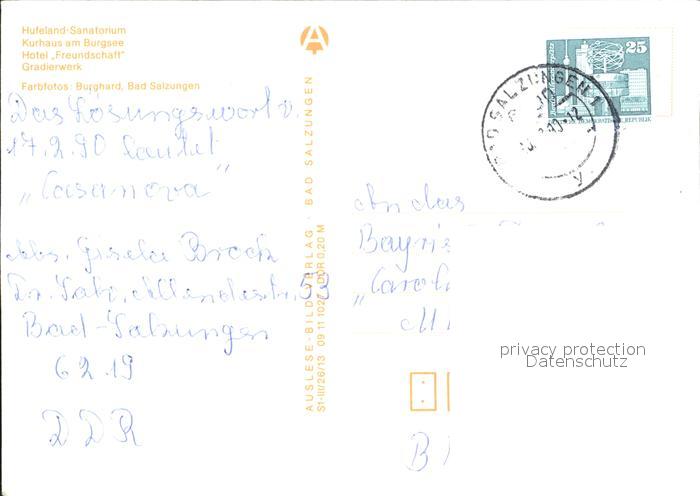 Hufeland-Sanatorium
Kurhaus am Burgsee
Hotel „Freundschaft"
Gradierwerk
Farbfotos: Burghard, Bad Salzungen
Das Losungswort v.
17.2.90 lautet
„Casanova"
Abs. Gisela Brock
Dr. Salv. Allendestr. 53
Bad-Salzungen
6219
DDR
AUSLESE-BILD-VERLAG · BAD SALZUNGEN
S1-III/26/13 09 11 102 DDR 0,20 M
25
BAD SALZUNGEN 1
An das
Bayri
„Carol
M
B
privacy protection
Datenschutz